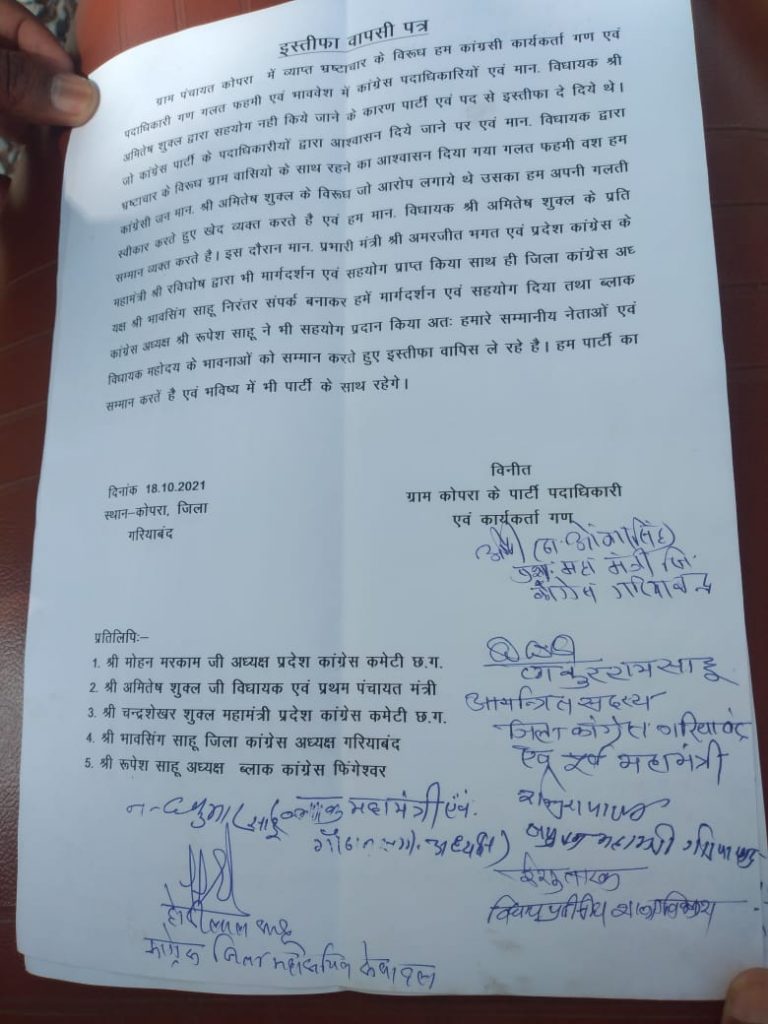 इस्तीफा वापसी पत्र
ग्राम पंचायत कोपरा में व्याप्त भ्रष्टाचार के विरूध हम कांग्रसी कार्यकर्ता गण एवं
पदाधिकारी गण गलत फहमी एवं भाववेश में कांग्रेस पदाधिकारियों एवं मान. विधायक श्री
अमितेष शुक्ल द्वारा सहयोग नही किये जाने के कारण पार्टी एवं पद से इस्तीफा दे दिये थे।
जो कांग्रेस पार्टी के पदाधिकारीयों द्वारा आश्वासन दिये जाने पर एवं मान. विधायक द्वारा
भ्रष्टाचार के विरूध ग्राम वासियो के साथ रहने का आश्वासन दिया गया गलत फहमी वश हम
कांग्रेसी जन मान. श्री अमितेष शुक्ल के विरूध जो आरोप लगाये थे उसका हम अपनी गलती
स्वीकार करते हुए खेद व्यक्त करते है एवं हम मान. विधायक श्री अमितेष शुक्ल के प्रति
सम्मान व्यक्त करते है। इस दौरान मान. प्रभारी मंत्री श्री अमरजीत भगत एवं प्रदेश कांग्रेस के
महामंत्री श्री रविघोष द्वारा भी मार्गदर्शन एवं सहयोग प्राप्त किया साथ ही जिला कांग्रेस अध
यक्ष श्री भावसिंग साहू निरंतर संपर्क बनाकर हमें मार्गदर्शन एवं सहयोग दिया तथा ब्लाक
कांग्रेस अध्यक्ष श्री रूपेश साहू ने भी सहयोग प्रदान किया अतः हमारे सम्मानीय नेताओं एवं
विधायक महोदय के भावनाओं को सम्मान करते हुए इस्तीफा वापिस ले रहे है। हम पार्टी का
सम्मान करतें है एवं भविष्य में भी पार्टी के साथ रहेगे।
विनीत
दिनांक 18.10.2021
ग्राम कोपरा के पार्टी पदाधिकारी
स्थान–कोपरा, जिला
एवं कार्यकर्ता गण
गरियाबंद
महा मंत्री जि.
गरियाबन्द
प्रतिलिपिः–
1. श्री मोहन मरकाम जी अध्यक्ष प्रदेश कांग्रेस कमेटी छ.ग.
2. श्री अमितेष शुक्ल जी विधायक एवं प्रथम पंचायत मंत्री
3. श्री चन्द्रशेखर शुक्ल महामंत्री प्रदेश कांग्रेस कमेटी छ.ग.
4. श्री भावसिंग साहू जिला कांग्रेस अध्यक्ष गरियाबंद
5. श्री रूपेश साहू अध्यक्ष ब्लाक कांग्रेस फिंगेश्वर
साहू
आमन्त्रित सदस्य
जिला कांग्रेस गरियाबंद
एवं पूर्व महामंत्री
महामंत्री एवं
अध्यक्ष)